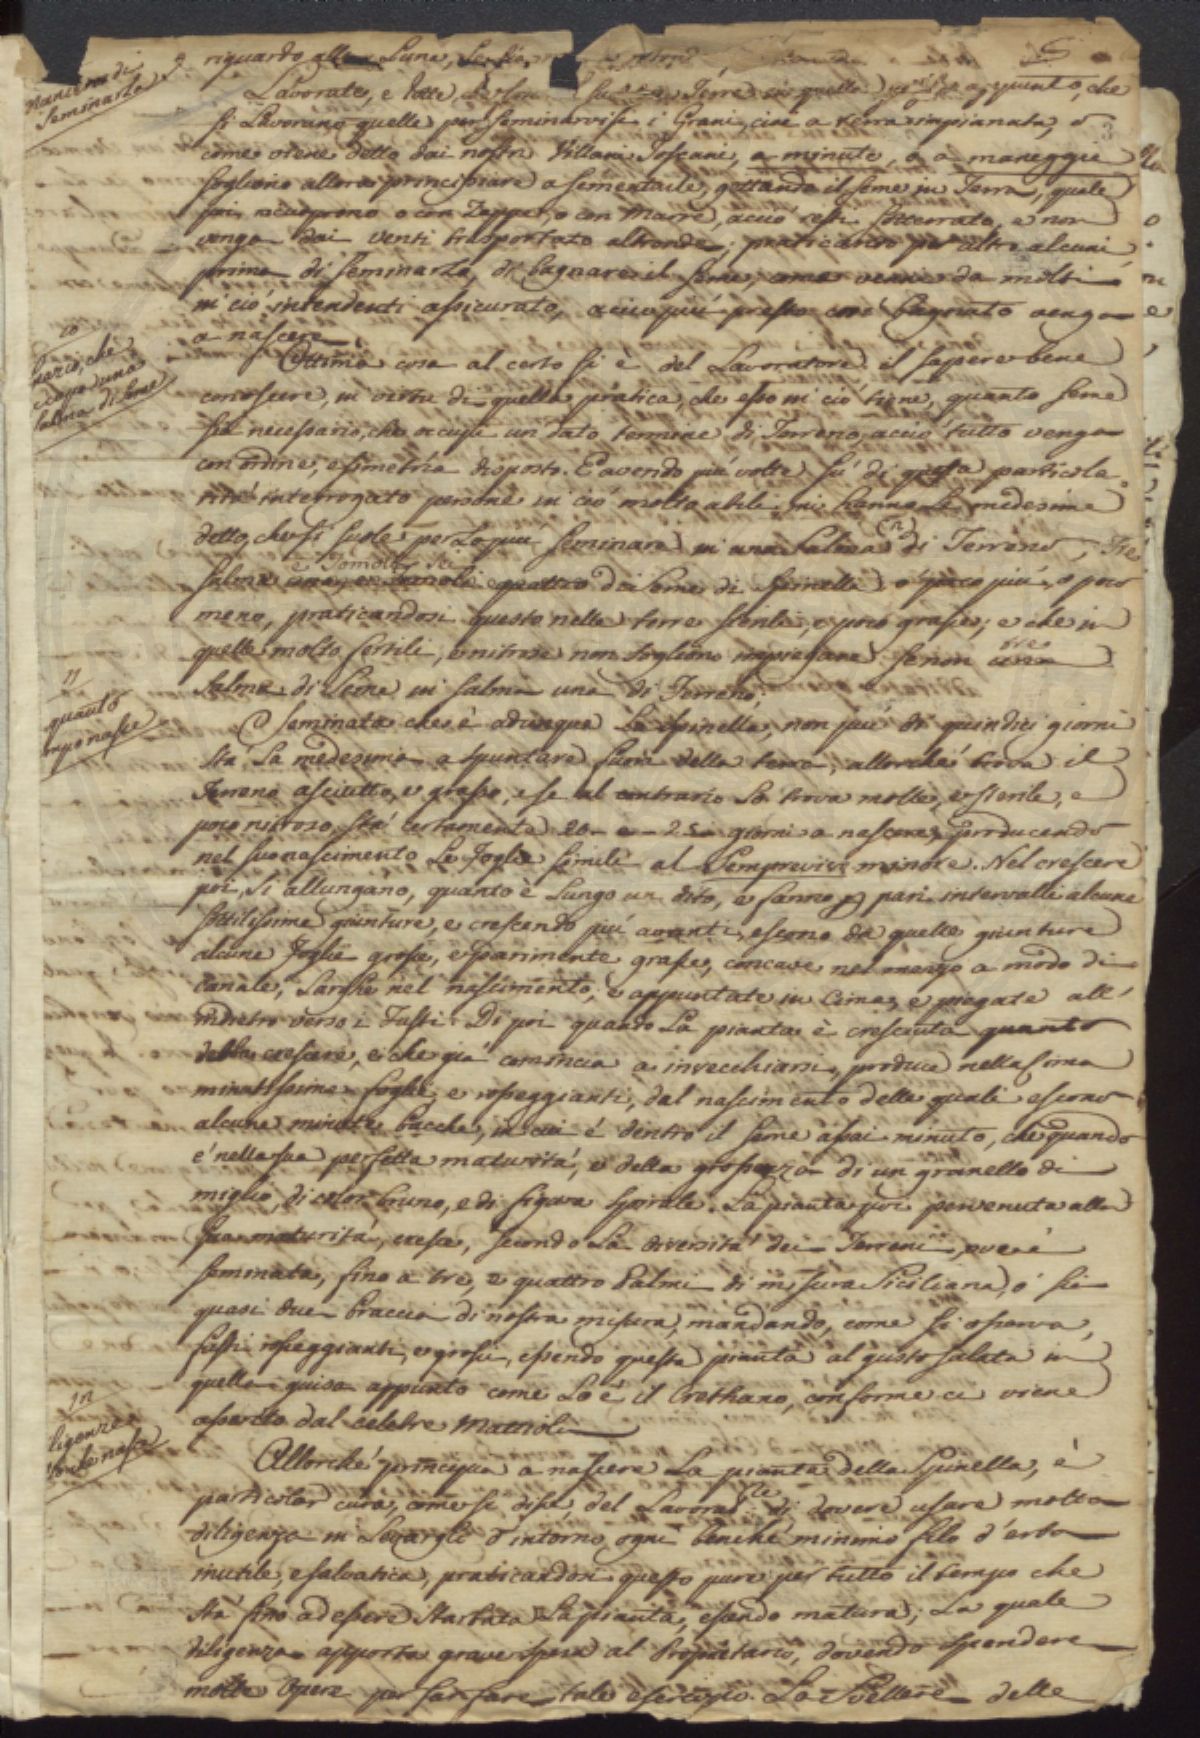 9
Maniera di
Seminarla
riguardo alla Luna, Le
3
Lavorate, e Terre in quella appunto, che
si Lavorano quelle per seminarvisi i Grani, cioè a terra impianata, o
come viene detto dai nostri Villani Toscani, a minuto, o a maneggie
sogliono allora principiare a sementarle, gettando il seme in Terra, quale
poi ricuoprono o con Zappe, o con Marre, acciò resti sotterrato, e non
venga dai venti trasportato altronde; praticando per altro alcuni
prima di seminarla, di bagnare il seme, come venne da molti
in ciò intendenti assicurato, acciò più presto così bagnato venga
a nascere.
10
Spazio, che
occupa una
Salma di seme
Ottima cosa al certo si è del Lavoratore il sapere bene
conoscere, in virtù di quella pratica, che esso in ciò tiene, quanto seme
sia necessario, che occupi un dato termine di Terreno, acciò tutto venga
con ordine, e simetria disposto. E avendo più volte su di questa particola
rità interrogato persone in ciò molto abili, mi hanno le medesime
detto, che si suole per lo più seminare in una Salma (n) di Terreno, Tre
Salme e Tomoli sei di seme di Spinella o poco più, o poco
meno, praticandosi questo nelle terre sterili, e poco grasse; e che in
quelle molto fertili, e nitrose non sogliono impiegare se non tre
Salme di Seme in Salma una di Terreno.
11
quanto
tempo nasce
Seminata che è adunque La Spinella, non più di quindici giorni
stà La medesima a spuntare fuori della terra, allorchè trova il
Terreno asciutto, e grasso, e se al contrario Lo trova molle, e sterile, e
poco nitroso, stà certamente 20 e 25 giorni a nascere, producendo
nel suo nascimento Le foglie simili al Semprevivo minore. Nel crescere
poi, si allungano, quanto è Lungo un dito, e fanno p pari intervalli alcune
sottilissime giunture, e crescendo più avanti, escono da quelle giunture
alcune foglie grosse, e parimente grasse, concave nel mezzo a modo di
Canale, Larghe nel nascimento, e appuntate in Cima, e piegate all'
indietro verso i Fusti. Di poi quando La pianta è cresciuta quanto
debba crescere, e che già comincia a invecchiarsi, produce nella cima
minutissime foglie, e rosseggianti, dal nascimento delle quali escono
alcune minute bacche, in cui è dentro il seme assai minuto, che quando
è nella sua perfetta maturità, è della grossezza di un granello di
miglio, di color bruno, e di figura spirale. La pianta poi pervenuta alla
sua maturità, cresce, secondo La diversità dei Terreni, ove è
seminata, fino a tre, e quattro Palmi di misura Siciliana, o sia
quasi due braccia di nostra misura, mandando, come si osserva,
fusti rosseggianti, e grossi, essendo questa pianta al gusto salata in
quella guisa appunto come Lo è il Crethamo, conforme ci viene
asserito dal celebre Mattioli
12
diligenze
Allorchè principia a nascere La pianta della Spinella, è
particolar cura, come si disse del Lavorat.te di dovere usare molta
diligenza in Levargli d'intorno ogni benchè minimo filo d'erba
inutile, e salvatica, praticandosi questo pure per tutto il tempo che
stà fino ad essere sbarbata La pianta, essendo matura; La quale
diligenza apporta grave spesa al Proprietario, dovendo spendere
molte Opere per far fare tale esercizio. Lo Svellere delle